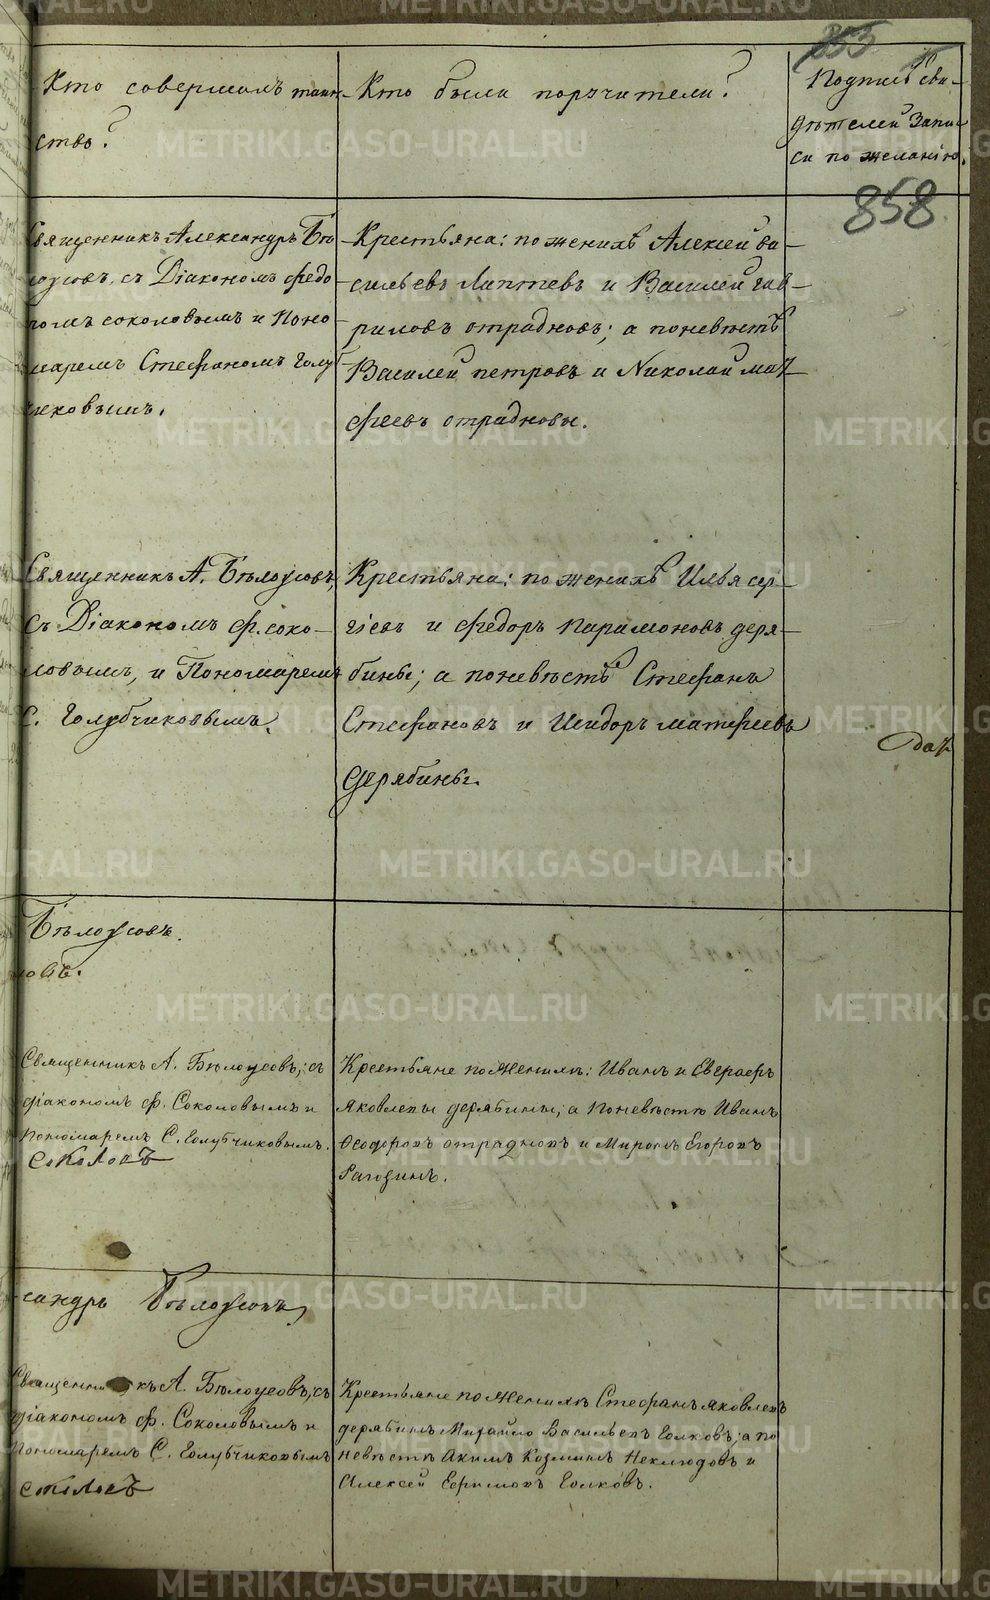 353
Кто совершалъ таин-
ство?
Кто были поручители?
Подпись сви-
дѣтелей запи-
си по желанію.
858
Священникъ Александръ Бѣ-
лоусовъ, съ Діакономъ Федо-
ромъ соколовымъ и Поно-
маремъ Стефаномъ голуб
чиковымъ.
Крестьяна: по женихѣ Алексей ва-
сильевъ Лаптевъ и Василей гав-
риловъ отрадновъ; а по невѣстѣ
Василей петровъ и Николай мат-
феевъ отрадновы.
Священникъ А. Бѣлоусовъ,
съ Діакономъ Ф. соко-
ловымъ, и Пономаремъ
С. Голубчиковымъ.
Крестьяна: по женихѣ Илья сер-
гіевъ и Федоръ Парамоновъ деря-
бины; а по невѣстѣ Стефанъ
Стефановъ и Исидоръ матфеевъ
Дерябины.
Бѣлоусовъ.
ловъ.
Священникъ А. Бѣлоусовъ, съ
діакономъ Ф. Соколовымъ и
пономаремъ С. Голубчиковымъ.
Соколовъ
Крестьяне по женихѣ: Иванъ и Севераръ
Яковлевы дерябины; а по невѣстѣ Иванъ
Феодоровъ отрадновъ и Миронъ Егоровъ
Рагозинъ.
сандръ Бѣлоусовъ,
Священникъ А. Бѣлоусовъ, съ
діакономъ Ф. Соколовымъ и
пономаремъ С. Голубчиковымъ
Крестьяне по женихѣ Стефанъ Яковлевъ
дерябинъ Михайло Васильевъ Голковъ; а по
невѣстѣ Акимъ Козминъ Неклюдовъ и
Алексей Ефимовъ Голковъ.
METRIKI.GASO-URAL.RU